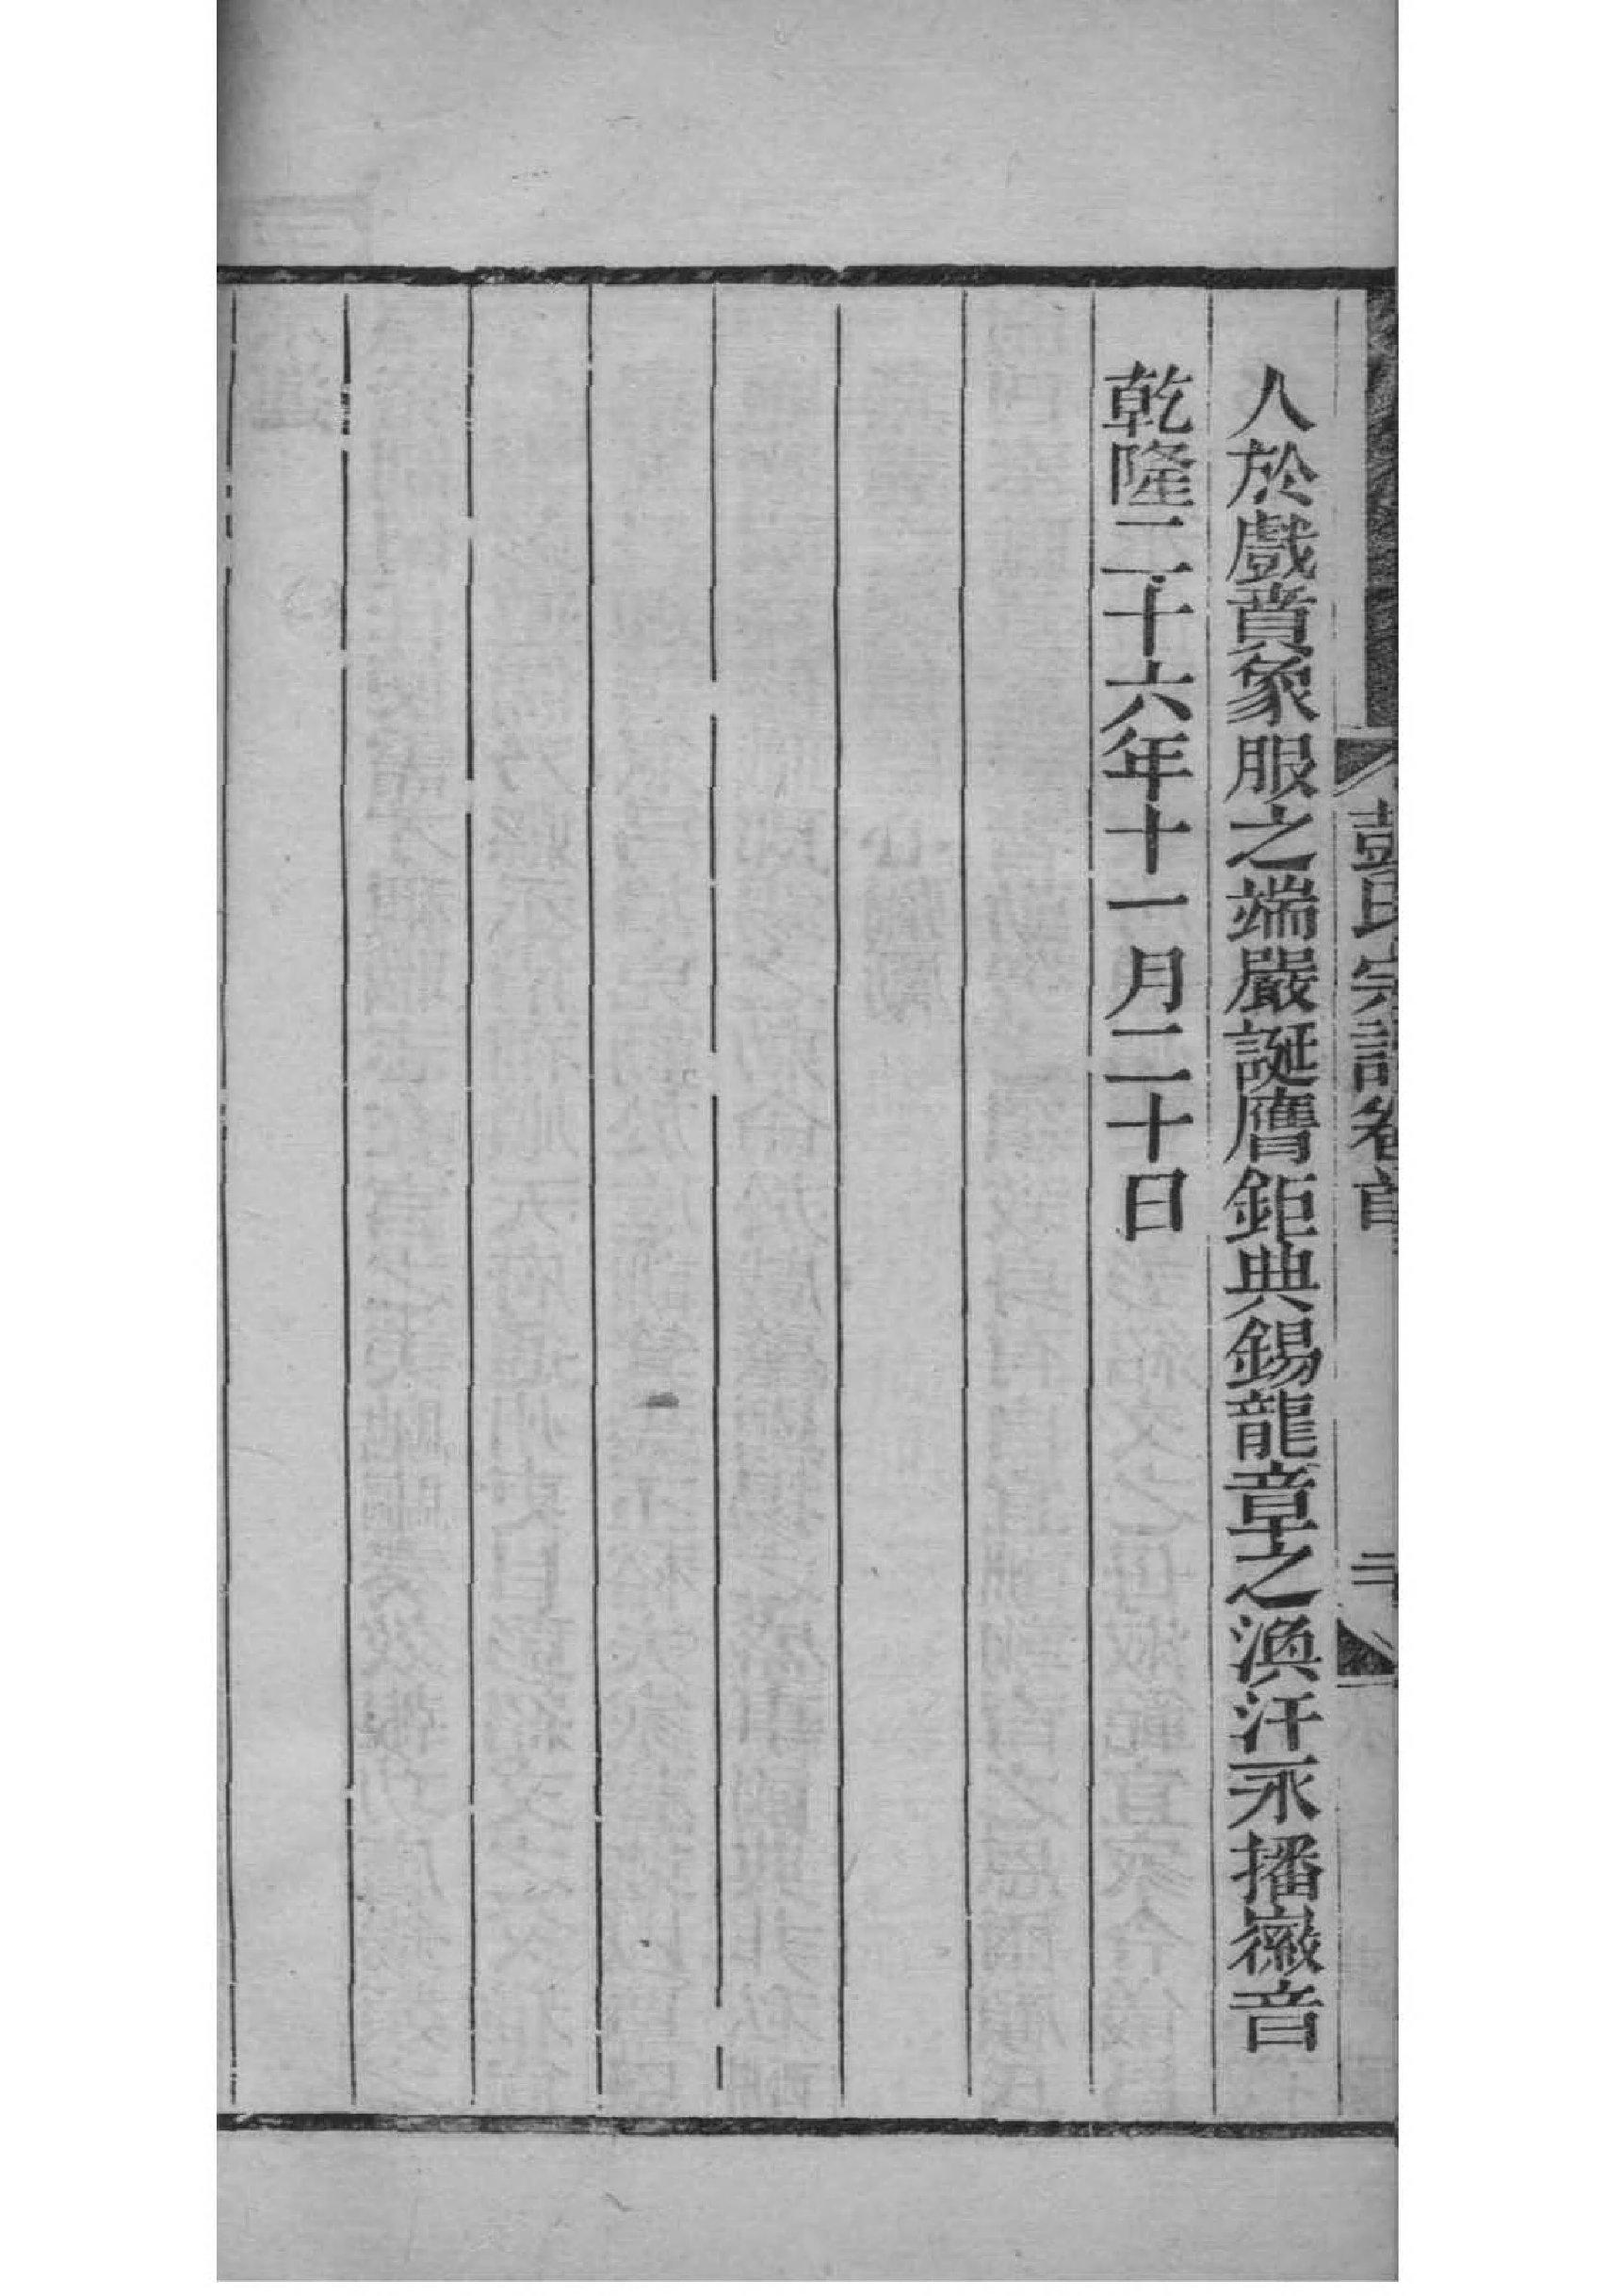 彭氏宗譜卷首
二十
人於戲賁象服之端嚴誕膺鉅典錫龍章之渙汗永播徽音
乾隆二十六年十一月二十日